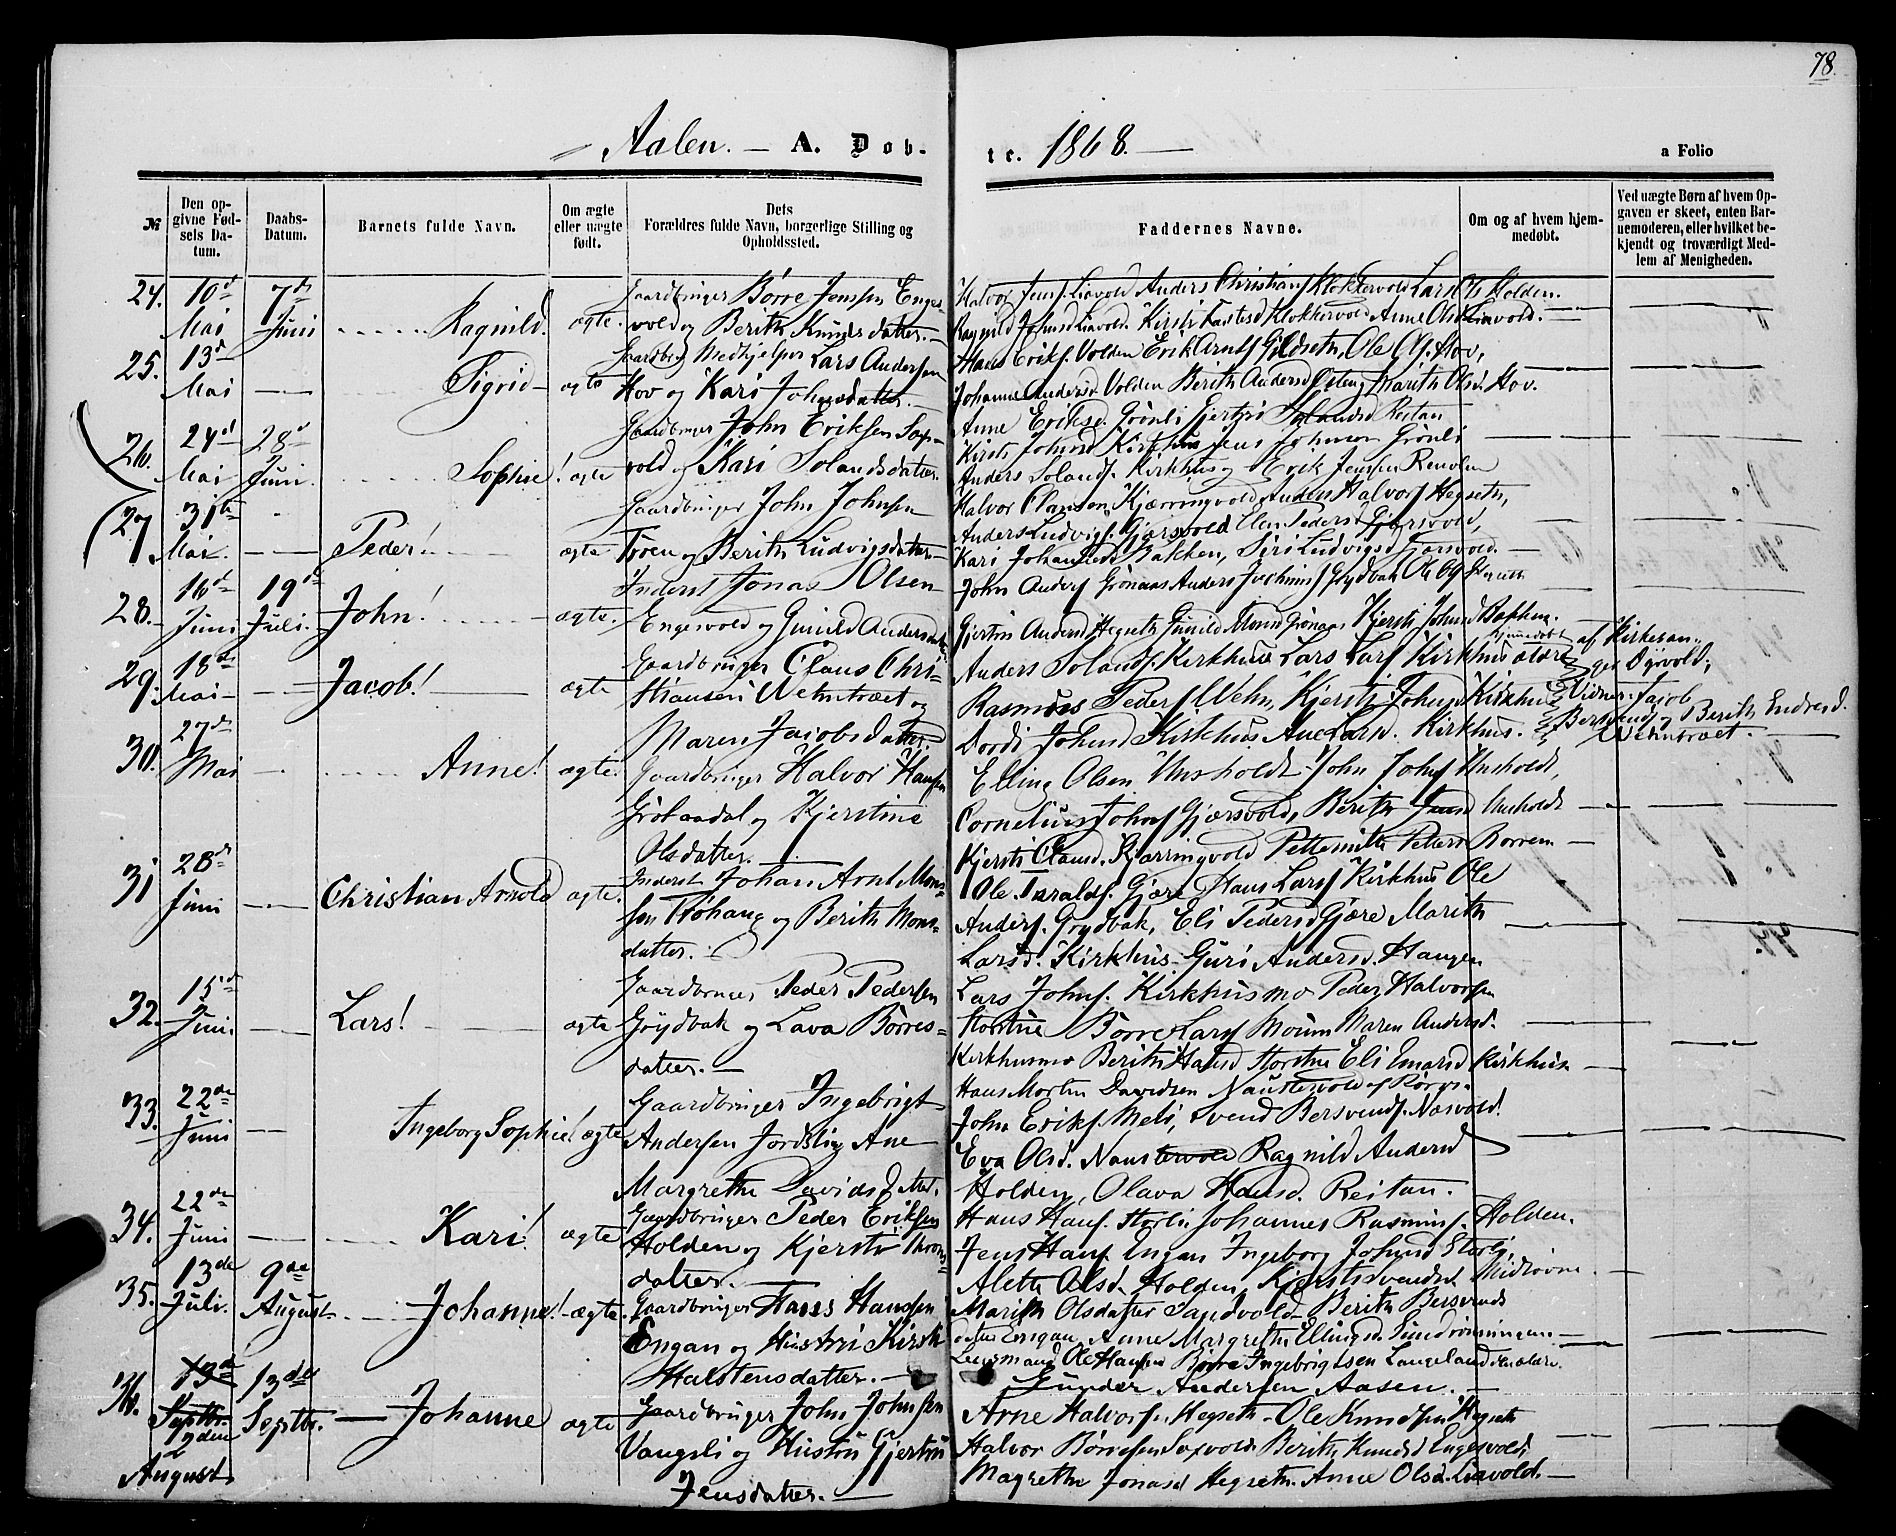 78.
Aalen. — A. Døb-
te. 1868. —
a Folio
№
Den op-
givne Fød-
sels Da-
tum.
Daabs-
Datum.
Barnets fulde Navn.
Om ægte
eller uægte
født.
Dets
Forældres fulde Navn, borgerlige Stilling og
Opholdssted.
Faddernes Navne.
Om og af hvem hjem-
medøbt.
Ved uægte Børn af hvem Op-
gaven er skeet, enten Bar-
nemoderen, eller hvilket be-
kjendt og troværdigt Med-
lem af Menigheden.
24. 10d Mai
7de Juni
Ragnild.
ægte.
Gaardbruger Børre Jensen Enges-
vold og Berith Knudsdatter. —
Halvor Jens. Liavold Anders Christians. Klokkervold Lars Ols. Holden.
Ragnild Johnsd. Liavold. Kirsti Klokkervold Anne Olsd. Liavold.
25. 13d Mai
Sigrid
ægte
Gaardbrg Medhjelper Lars Andersen
Hov og Kari Johnsdatter.
Hans Eriks. Volden Erik Arnts. Gildseth, Ole Ols. Hov,
Johanne Andersd. Volden Berith Andersd. Marith Olsd. Hov.
26. 24d Mai
28d Juni
Sophie!
ægte
Gaardbruger John Eriksen Sax-
vold og Kari Solandsdatter
Anne Eriksd. Grønli Gjertru Solandsd. Reitan
Kirsti Johnsd. Kirkhus Jens Johnsen Grønli
Anders Solands. Kirkhus og Erik Jensen Renolen
27 31te Mai.
Peder!
ægte
Gaardbruger John Johnsen
Troen og Berith Ludvigsdatter
Halvor Clausen Kjærringvold Anders Halvors. Hegseth,
Anders Ludvigs. Gjærsvold Elen Pedersd. Gjærsvold,
Kari Johansd. Bakken, Siri Ludvigsd. Gjærsvold.
28. 16d Juni
19de Juli.
John!
ægte.
Inderst Jonas Olsen
Engesvold og Gunild Andersdatter
John Anders. Grønaas Anders Jochums. Grydbak Ole
Gjertru Andersd. Hegseth Gunild Monsd. Grønaas Kjersti Johnsd. Bakken.
29. 18de Mai
Jacob!
ægte
Gaardbruger Claus Chri-
stiansen Wehntræet og
Maren Jacobsdatter.
Anders Solands. Kirkhus Lars Lars. Kirkhus ældre
Rasmus Peders. Wehn, Kjersti Johnsd. Kirkhus
Dordi Johnsd. Kirkhus Ane Larsd. Kirkhus.
Hjemmedøbt af Kirkesan-
ger Dyrvold,
Vidner: Jacob
og Berith Endresd.
Wehntræet.
30. 27d Mai
Anne!
ægte.
Gaardbruger Halvor Hansen
Grøtaadal og Kjerstine
Olsdatter.
Elling Olsen Unsholdt John Johns. Unsholdt,
Cornelius Johns. Gjærsvold, Berith Jensd. Unsholdt
Kjersti Clausd. Kjærringvold Borren
31 28d Juni
Christian Arnold
ægte.
Inderst Johan Arnt Mons-
sen Røhaug og Berith Mons-
datter.
Ole Taralds. Gjære Hans Lars. Kirkhus Ole
Anders. Grydbak, Eli Pedersd. Gjære Marith
Larsd. Kirkhus Guri Andersd. Haugen
32. 15d Juni
Lars!
ægte
Gaardbruger Peder Pedersen
Grydbak og Lava Børres-
datter. —
Lars Johns. Kirkhusmo Peder Halvorsen
Stortue Børre Lars. Moum Maren Andersd.
Kirkhusmo Berith Hansd. Stortue Eli Kirkhus
33. 22de Juni
Ingeborg Sophie!
ægte
Gaardbruger Ingebrigt
Andersen Jordslig Ane
Margrethe Davids Datter.
Hans Morten Davidsen Naustervold af Røros.
John Eriks. Meli, Svend Bersvends. Næsvold.
Eva Olsd. Naustervold Ragnild Andersd.
Holden, Olava Hansd. Reitan.
34. 22de Juni
Kari!
ægte
Gaardbruger Peder Eriksen
Holden og Kjersti
datter.
Hans Hans. Storli Johannes Rasmus. Holden.
Jens Hans. Engan Ingeborg Johnsd. Storli,
Aleth Olsd. Holden, Kjersti Svendsd. Midtøvne
35. 13de Juli.
9de August
Johanne!
ægte.
Gaardbruger Hans Hansen
Engan og Hustru Kirsti
Halstensdatter. —
Marith Olsdatter Sandvold Berith Bersvends
datter Engan, Anne Margrethe Ellingsd. Sundrønningen. —
Lensmand Ole Hansen Børre Ingebrigtsen Langeland den ældre.
Gunder Andersen Aasen. —
36. 13de Septbr. 7den August
13de Septbr.
Johanne
ægte
Gaardbruger John Johnsen
Vangsli og Hustru Gjertru
Jensdatter. —
Arne Halvorsen Hegseth — Ole Knudsen Hegseth
Halvor Børresen Saxvold Berith Knudsd. Engesvold,
Magrethe Jonasd. Hegseth. Anne Olsd. Liavold. —